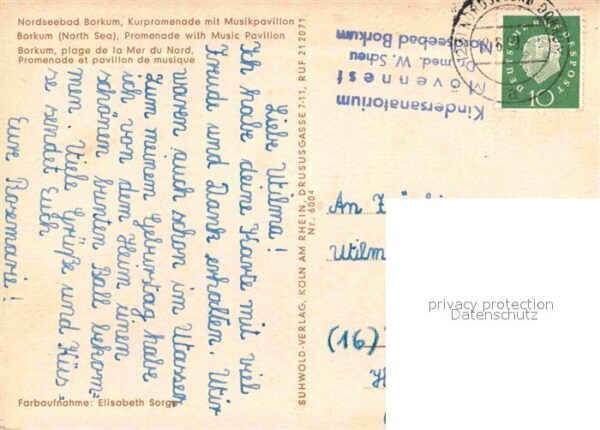 Nordseebad Borkum, Kurpromenade mit Musikpavillon
Borkum (North Sea), Promenade with Music Pavilion
Borkum, plage de la Mer du Nord,
Promenade et pavillon de musique
Liebe Wilma!
Ich habe deine Karte mit viel
Freude und Dank erhalten. Wir
waren auch schon im Wasser
Zum meinem Geburtstag habe
ich von dem Heim einen
schönen bunten Ball bekom=
men. Viele Grüße und Küs=
se sendet Euch
Eure Rosemarie!
Farbaufnahme: Elisabeth Sorge
SUHWOLD-VERLAG, KÖLN AM RHEIN, DRUSUSGASSE 7-11, RUF 212071
Nr. 6004
Kindersanatorium
Mövennest
Dr. med. W. Scheu
Nordseebad Borkum
NORDSEEBAD BORKUM
DEUTSCHE BUNDESPOST
10
An
Wilm
(16)
H
privacy protection
Datenschutz